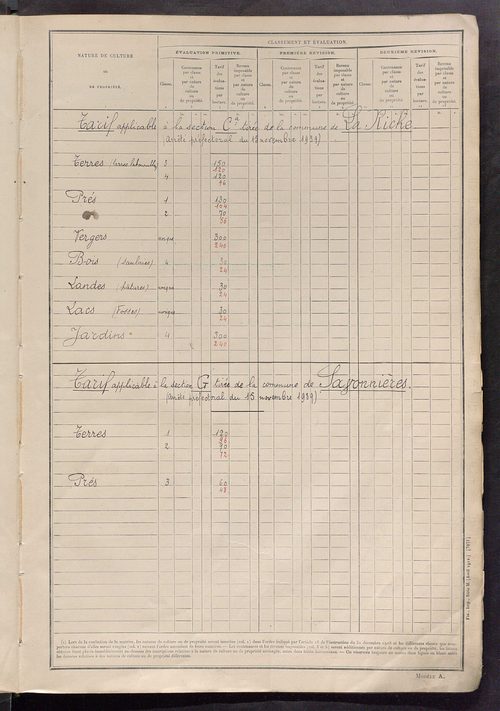 CLASSEMENT ET ÉVALUATION.
NATURE DE CULTURE
OU
DE PROPRIÉTÉ.
ÉVALUATION PRIMITIVE. PREMIÈRE RÉVISION. DEUXIÈME RÉVISION.
Classes. Contenance par classe et par nature de culture ou de propriété. Tarif des évaluations par hectare. Revenu imposable par classe et par nature de culture ou de propriété.
Classes. Contenance par classe et par nature de culture ou de propriété. Tarif des évaluations par hectare. Revenu imposable par classe et par nature de culture ou de propriété.
Classes. Contenance par classe et par nature de culture ou de propriété. Tarif des évaluations par hectare. Revenu imposable par classe et par nature de culture ou de propriété.
Tarif applicable à la section C tirée de la commune de La Riche
(arrêté préfectoral du 15 novembre 1939)
Terres 3 150
120
4 120
96
Prés 1 130
104
2 70
56
Vergers unique 300
240
Bois (Saulaies) 4 30
24
Landes (Pâtures) unique 30
24
Lacs (Fosses) unique 30
24
Jardins 4 300
240
Tarif applicable à la section G tirée de la commune de Savonnières.
(arrêté préfectoral du 15 novembre 1939)
Terres 1 120
96
2 90
72
Prés 3 60
48
MODÈLE A.